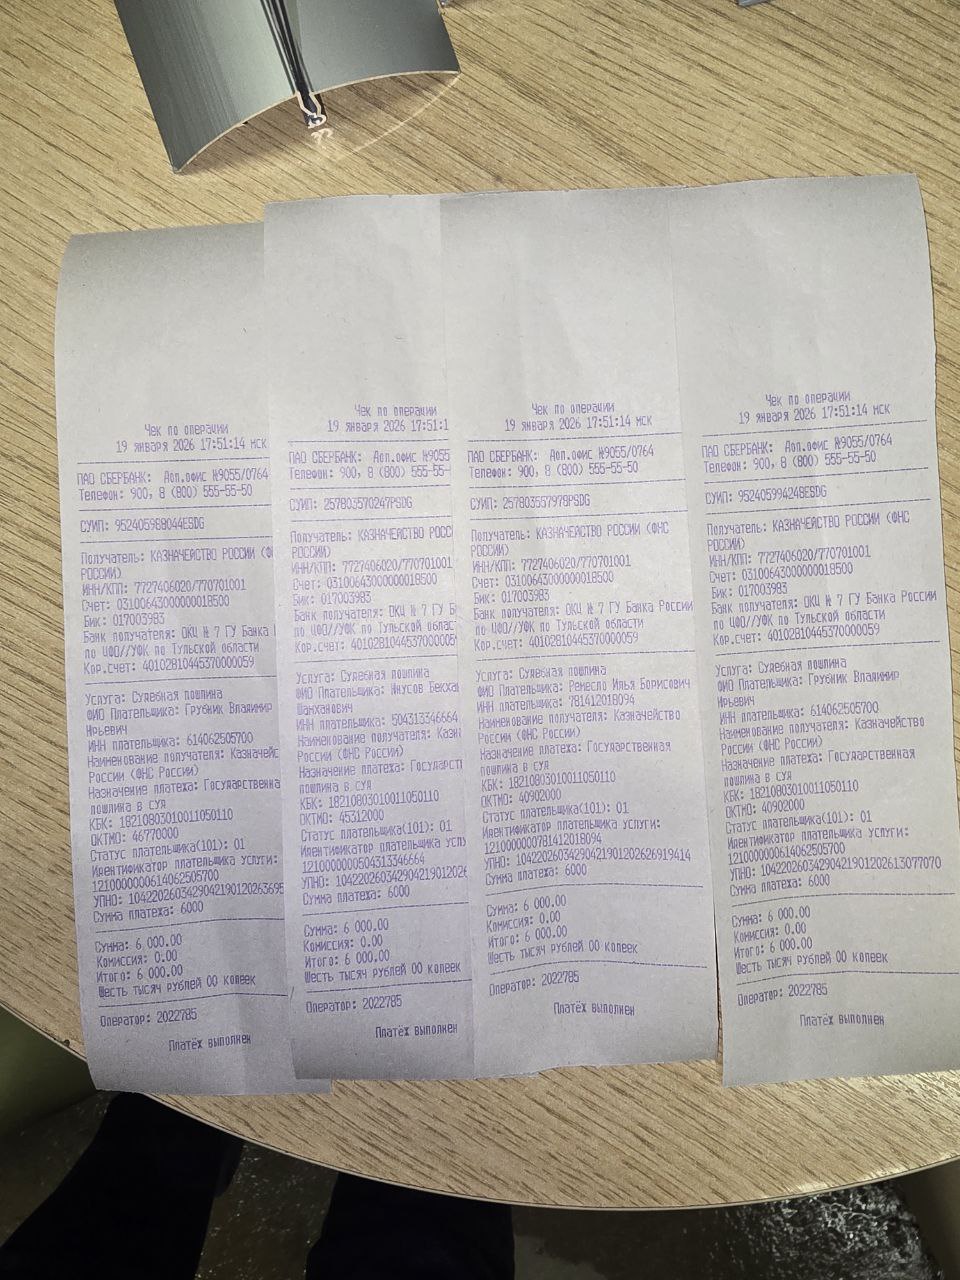 Чек по операции
19 января 2026 17:51:14 мск
ПАО СБЕРБАНК: Доп.офис №9055/0764
Телефон: 900, 8 (800) 555-55-50
СУИП: 952405988044ESDG
Получатель: КАЗНАЧЕЙСТВО РОССИИ
РОССИИ)
ИНН/КПП: 7727406020/770701001
Счет: 03100643000000018500
Бик: 017003983
Банк получателя: ОКЦ № 7 ГУ Банка
по ЦФО//УФК по Тульской области
Кор.счет: 40102810445370000059
Услуга: Судебная пошлина
ФИО Плательщика: Грубник Владимир
Юрьевич
ИНН плательщика: 614062505700
Наименование получателя: Казначейс
России (ФНС России)
Назначение платежа: Государственна
пошлина в суд
КБК: 18210803010011050110
ОКТМО: 46770000
Статус плательщика(101): 01
Идентификатор плательщика услуги:
1210000000614062505700
УПНО: 1042202603429042190120263695
Сумма платежа: 6000
Сумма: 6 000.00
Комиссия: 0.00
Итого: 6 000.00
Шесть тысяч рублей 00 копеек
Оператор: 2022785
Платёж выполнен
Чек по операции
19 января 2026 17:51:1
ПАО СБЕРБАНК: Доп.офис №9055
Телефон: 900, 8 (800) 555-55-
СУИП: 257803570247PSDG
Получатель: КАЗНАЧЕЙСТВО РОСС
РОССИИ)
ИНН/КПП: 7727406020/770701001
Счет: 03100643000000018500
Бик: 017003983
Банк получателя: ОКЦ № 7 ГУ Б
по ЦФО//УФК по Тульской облас
Кор.счет: 4010281044537000005
Услуга: Судебная пошлина
ФИО Плательщика: Юнусов Бекхан
Шанханович
ИНН плательщика: 504313346664
Наименование получателя: Казн
России (ФНС России)
Назначение платежа: Государст
пошлина в суд
КБК: 18210803010011050110
ОКТМО: 45312000
Статус плательщика(101): 01
Идентификатор плательщика усл
1210000000504313346664
УПНО: 104220260342904219012026
Сумма платежа: 6000
Сумма: 6 000.00
Комиссия: 0.00
Итого: 6 000.00
Шесть тысяч рублей 00 копеек
Оператор: 2022785
Платёж выполнен
Чек по операции
19 января 2026 17:51:14 мск
ПАО СБЕРБАНК: Доп.офис №9055/0764
Телефон: 900, 8 (800) 555-55-50
СУИП: 257803557978PSDG
Получатель: КАЗНАЧЕЙСТВО РОССИИ (ФНС
РОССИИ)
ИНН/КПП: 7727406020/770701001
Счет: 03100643000000018500
Бик: 017003983
Банк получателя: ОКЦ № 7 ГУ Банка России
по ЦФО//УФК по Тульской области
Кор.счет: 40102810445370000059
Услуга: Судебная пошлина
ФИО Плательщика: Ремесло Илья Борисович
ИНН плательщика: 781412018094
Наименование получателя: Казначейство
России (ФНС России)
Назначение платежа: Государственная
пошлина в суд
КБК: 18210803010011050110
ОКТМО: 40902000
Статус плательщика(101): 01
Идентификатор плательщика услуги:
1210000000781412018094
УПНО: 10422026034290421901202626919414
Сумма платежа: 6000
Сумма: 6 000.00
Комиссия: 0.00
Итого: 6 000.00
Шесть тысяч рублей 00 копеек
Оператор: 2022785
Платёж выполнен
Чек по операции
19 января 2026 17:51:14 мск
ПАО СБЕРБАНК: Доп.офис №9055/0764
Телефон: 900, 8 (800) 555-55-50
СУИП: 952405994248ESDG
Получатель: КАЗНАЧЕЙСТВО РОССИИ (ФНС
РОССИИ)
ИНН/КПП: 7727406020/770701001
Счет: 03100643000000018500
Бик: 017003983
Банк получателя: ОКЦ № 7 ГУ Банка России
по ЦФО//УФК по Тульской области
Кор.счет: 40102810445370000059
Услуга: Судебная пошлина
ФИО Плательщика: Грубник Владимир
Юрьевич
ИНН плательщика: 614062505700
Наименование получателя: Казначейство
России (ФНС России)
Назначение платежа: Государственная
пошлина в суд
КБК: 18210803010011050110
ОКТМО: 40902000
Статус плательщика(101): 01
Идентификатор плательщика услуги:
1210000000614062505700
УПНО: 10422026034290421901202613077070
Сумма платежа: 6000
Сумма: 6 000.00
Комиссия: 0.00
Итого: 6 000.00
Шесть тысяч рублей 00 копеек
Оператор: 2022785
Платёж выполнен